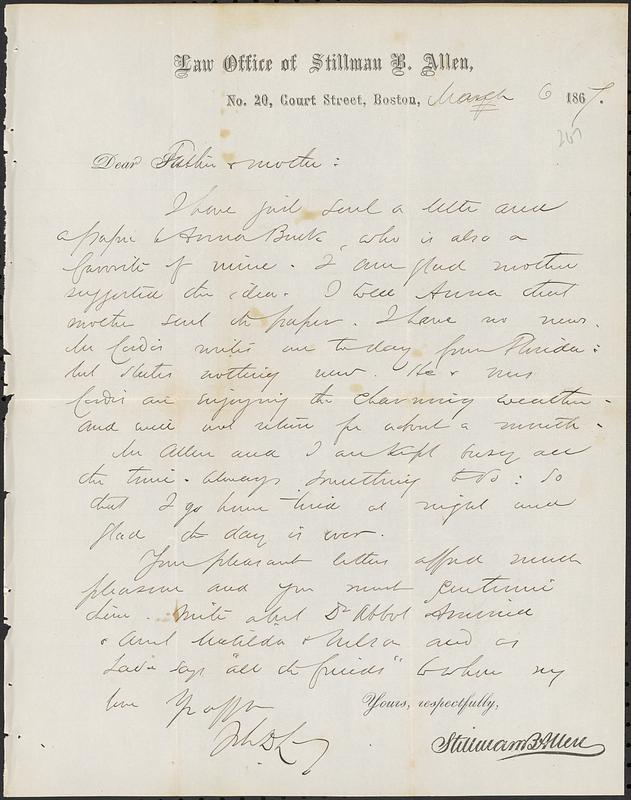 Law Office of Stillman B. Allen,
No. 20, Court Street, Boston, March 6 1867.
267
Dear Father & mother:
I have just sent a letter and
a paper to Anna Buck, who is also a
favorite of mine. I am glad mother
suggested the idea. I told Anna that
mother sent the paper. I have no news.
Mr writes me to day from Florida:
but states nothing new. He & Mrs
are enjoying the charming weather.
and will not return for about a month.
Mr Allen and I are kept busy all
the time. Always something to do: So
that I go home tired at night and
glad the day is over.
Your pleasant letters afford much
pleasure and you must continue
them. Write about Dr Abbot
& Aunt Matilda & Nelson and as
says "all the friends" to whom my
love Yr aff
John D Long
Yours, respectfully,
Stillman B. Allen